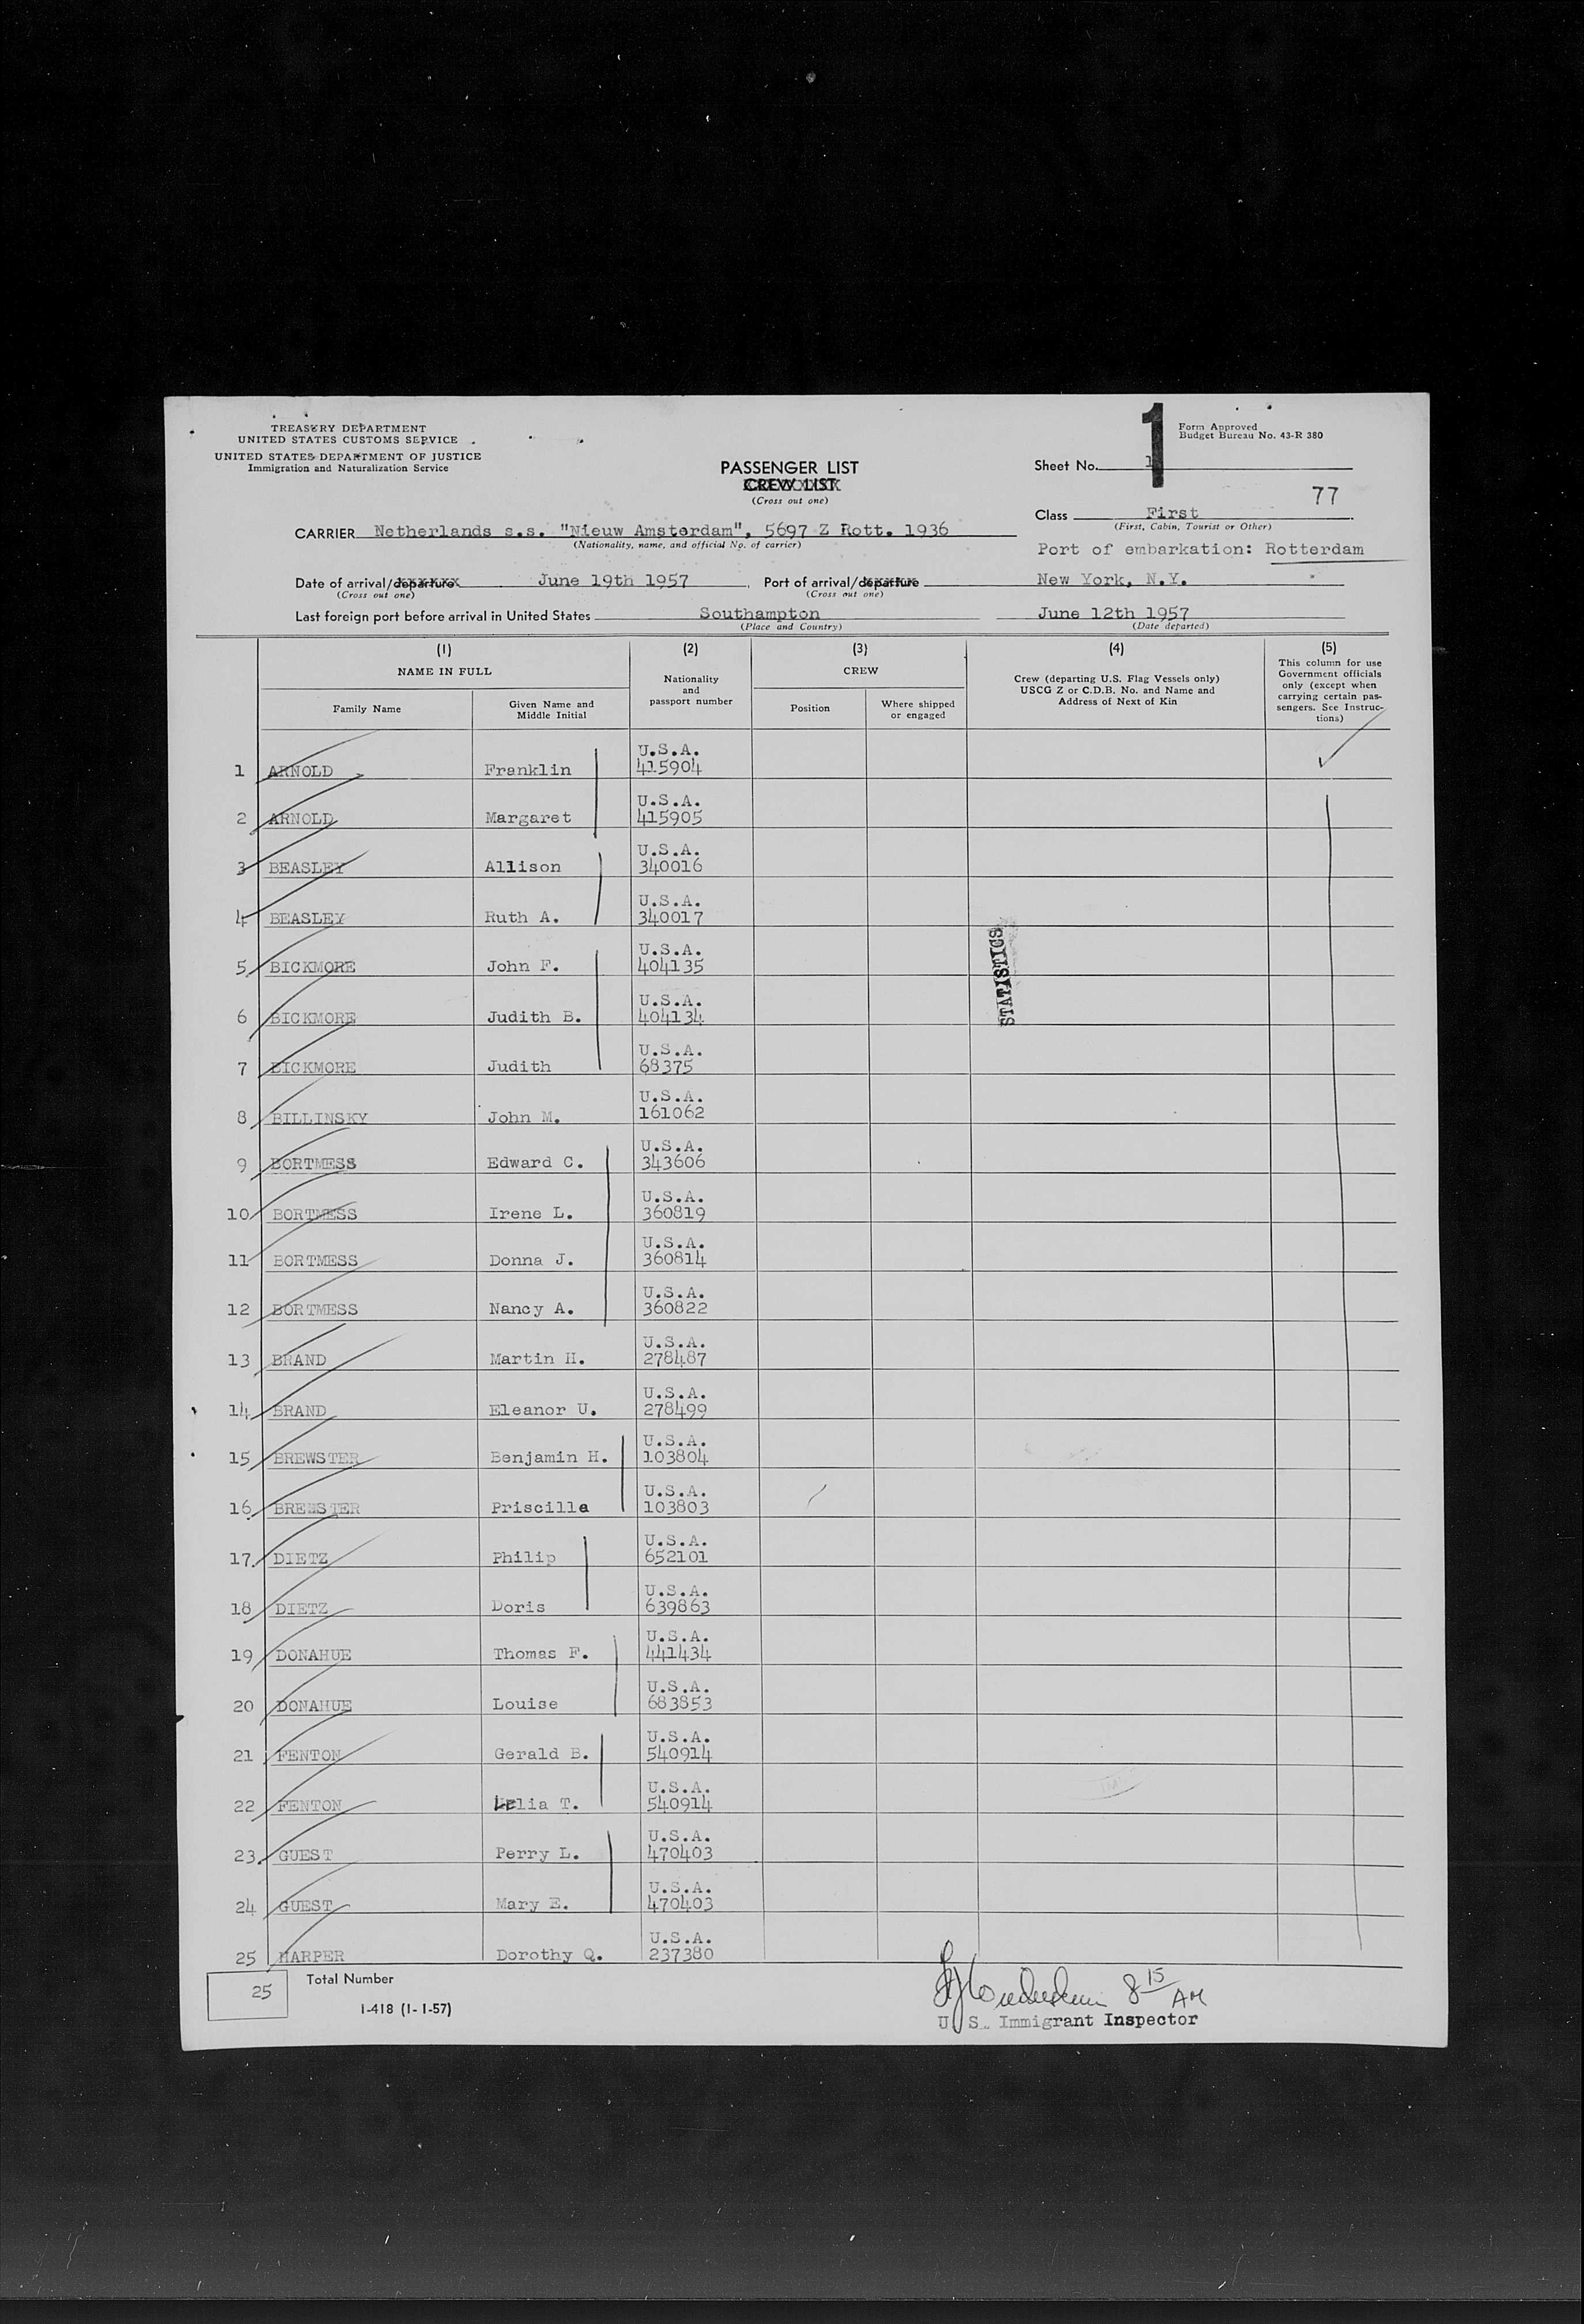 TREASURY DEPARTMENT
UNITED STATES CUSTOMS SERVICE
UNITED STATES DEPARTMENT OF JUSTICE
Immigration and Naturalization Service
1
Form Approved
Budget Bureau No. 43-R 380
PASSENGER LIST
CREW LIST
(Cross out one)
Sheet No. 1
77
Class First
(First, Cabin, Tourist or Other)
CARRIER Netherlands s.s. "Nieuw Amsterdam", 5697 Z Rott. 1936
(Nationality, name, and official No. of carrier)
Port of embarkation: Rotterdam
Date of arrival/departure June 19th 1957, Port of arrival/departure New York, N.Y.
(Cross out one) (Cross out one)
Last foreign port before arrival in United States Southampton June 12th 1957
(Place and Country) (Date departed)
(1) (2) (3) (4) (5)
NAME IN FULL
Family Name
Given Name and Middle Initial
Nationality and passport number
CREW
Position
Where shipped or engaged
Crew (departing U.S. Flag Vessels only)
USCG Z or C.D.B. No. and Name and
Address of Next of Kin
This column for use
Government officials
only (except when
carrying certain pas-
sengers. See Instruc-
tions)
1 ARNOLD Franklin U.S.A. 415904
2 ARNOLD Margaret U.S.A. 415905
3 BEASLEY Allison U.S.A. 340016
4 BEASLEY Ruth A. U.S.A. 340017
5 BICKMORE John F. U.S.A. 404135
6 BICKMORE Judith B. U.S.A. 404134
7 BICKMORE Judith U.S.A. 68375
8 BILLINSKY John M. U.S.A. 161062
9 BORTMESS Edward C. U.S.A. 343606
10 BORTMESS Irene L. U.S.A. 360819
11 BORTMESS Donna J. U.S.A. 360814
12 BORTMESS Nancy A. U.S.A. 360822
13 BRAND Martin H. U.S.A. 278487
14 BRAND Eleanor U. U.S.A. 278499
15 BREWSTER Benjamin H. U.S.A. 103804
16 BREWSTER Priscilla U.S.A. 103803
17 DIETZ Philip U.S.A. 652101
18 DIETZ Doris U.S.A. 639863
19 DONAHUE Thomas F. U.S.A. 441434
20 DONAHUE Louise U.S.A. 683853
21 FENTON Gerald B. U.S.A. 540914
22 FENTON Lelia T. U.S.A. 540914
23 GUEST Perry L. U.S.A. 470403
24 GUEST Mary E. U.S.A. 470403
25 HARPER Dorothy Q. U.S.A. 237380
STATISTICS
25
Total Number
I-418 (1-1-57)
8 15 AM
U.S. Immigrant Inspector